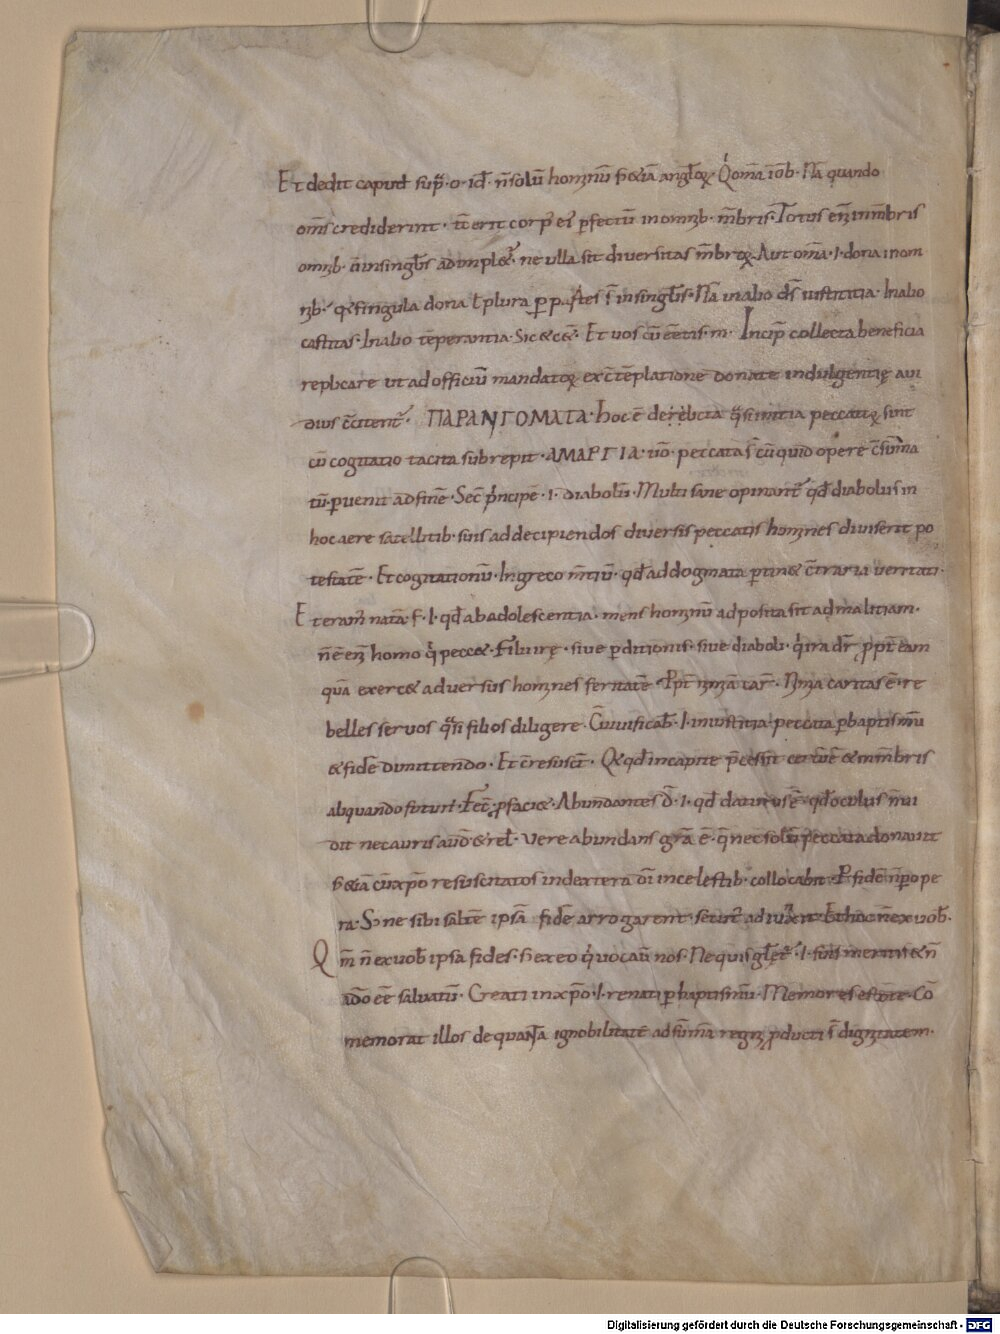 Et dedit caput sup̄ · o · id̄ · n̄ solū hominū s̄ & iā anglorꝝ · Qi omīa ī oīb · Nā quando
om̄s crediderint · tc̄ erit corp᾽ ei᾽ pfectū in omnib · mbris · Totus enī in mbris
omnib · ñ in singulis adimplet᾽ · ne ulla sit diversitas mbrorꝝ · Aut omīa · i · dona in om
nib · q̄ singula dona ł plura
castitas · In alio tēperantia · Sic & cē · Et vos cū
replicare ut ad officiū mandatorꝝ ex cōtēplatione donate indulgentię avi
dius · ΠΑΡΑΝΤΟΜΑΤΑ · hoc ē delicta q̄si initia peccati sunt
cū cogitatio tacita subrepit · ΑΜΑΡΓΙΑ · vō · peccata s̄ cū quid opere
tū pervenit ad finē · Sec̄ p̄ncipē · i · diabolū · Multi sane opinant᾽ qd̄ diabolus in
hoc aere satellitib · suis ad decipiendos diversis peccatis homines diviserit po
testatē · Et cogitationū · In greco · qd̄ ad dogmata ptinet c̄traria veritati ·
Et eram᾽ natā · f · i · qd̄ ab adolescentia · mens hominū adposita sit ad malitiam ·
n̄ ē enī homo qi n̄ peccet · Filii irę · sive pditionis · sive diaboli · q̄ ira dr̄ ppt̄ eam
quā exercet adversus homines feritatē · Ppt̄ nimiā car̄ · Nimia caritas ē · re
belles servos q̄si filios diligere · Cūvivificab · i · iniustitia peccata p baptismū
& fidē dimittendo · Et c̄resuscit̄ · Qi qd̄ in capite p̄cessit certū ē & in mbris
aliquando futurū · Abundantes d̄ · i · qd̄ daturus ē · qd̄ oculus n̄ vi
dit nec auris aud̄ & rel̄ · Vere abundans gr̄a ē · q̄ nec solū peccata donavit
s̄ & iā cū xp̄o resuscitatos in dextera dī in celestib · collocabit · P fidē n̄ p ope
ra · S; ne sibi saltē ipsā fidē arrogarent · Et hoc n̄ ex vob̄ ·
Qm̄ n̄ ex vob̄ ipsa fides · s̄ ex eo qi vocavit nos · Ne quis gl̄et᾽ · i · suis meritis & n̄
a dō eē salvatū · Creati in xp̄o · i · renati p baptismū · Memores estote · Cō
memorat illos de quanta ignobilitate ad sūmā regni pducti s̄ dignitatem ·
Digitalisierung gefördert durch die Deutsche Forschungsgemeinschaft - DFG